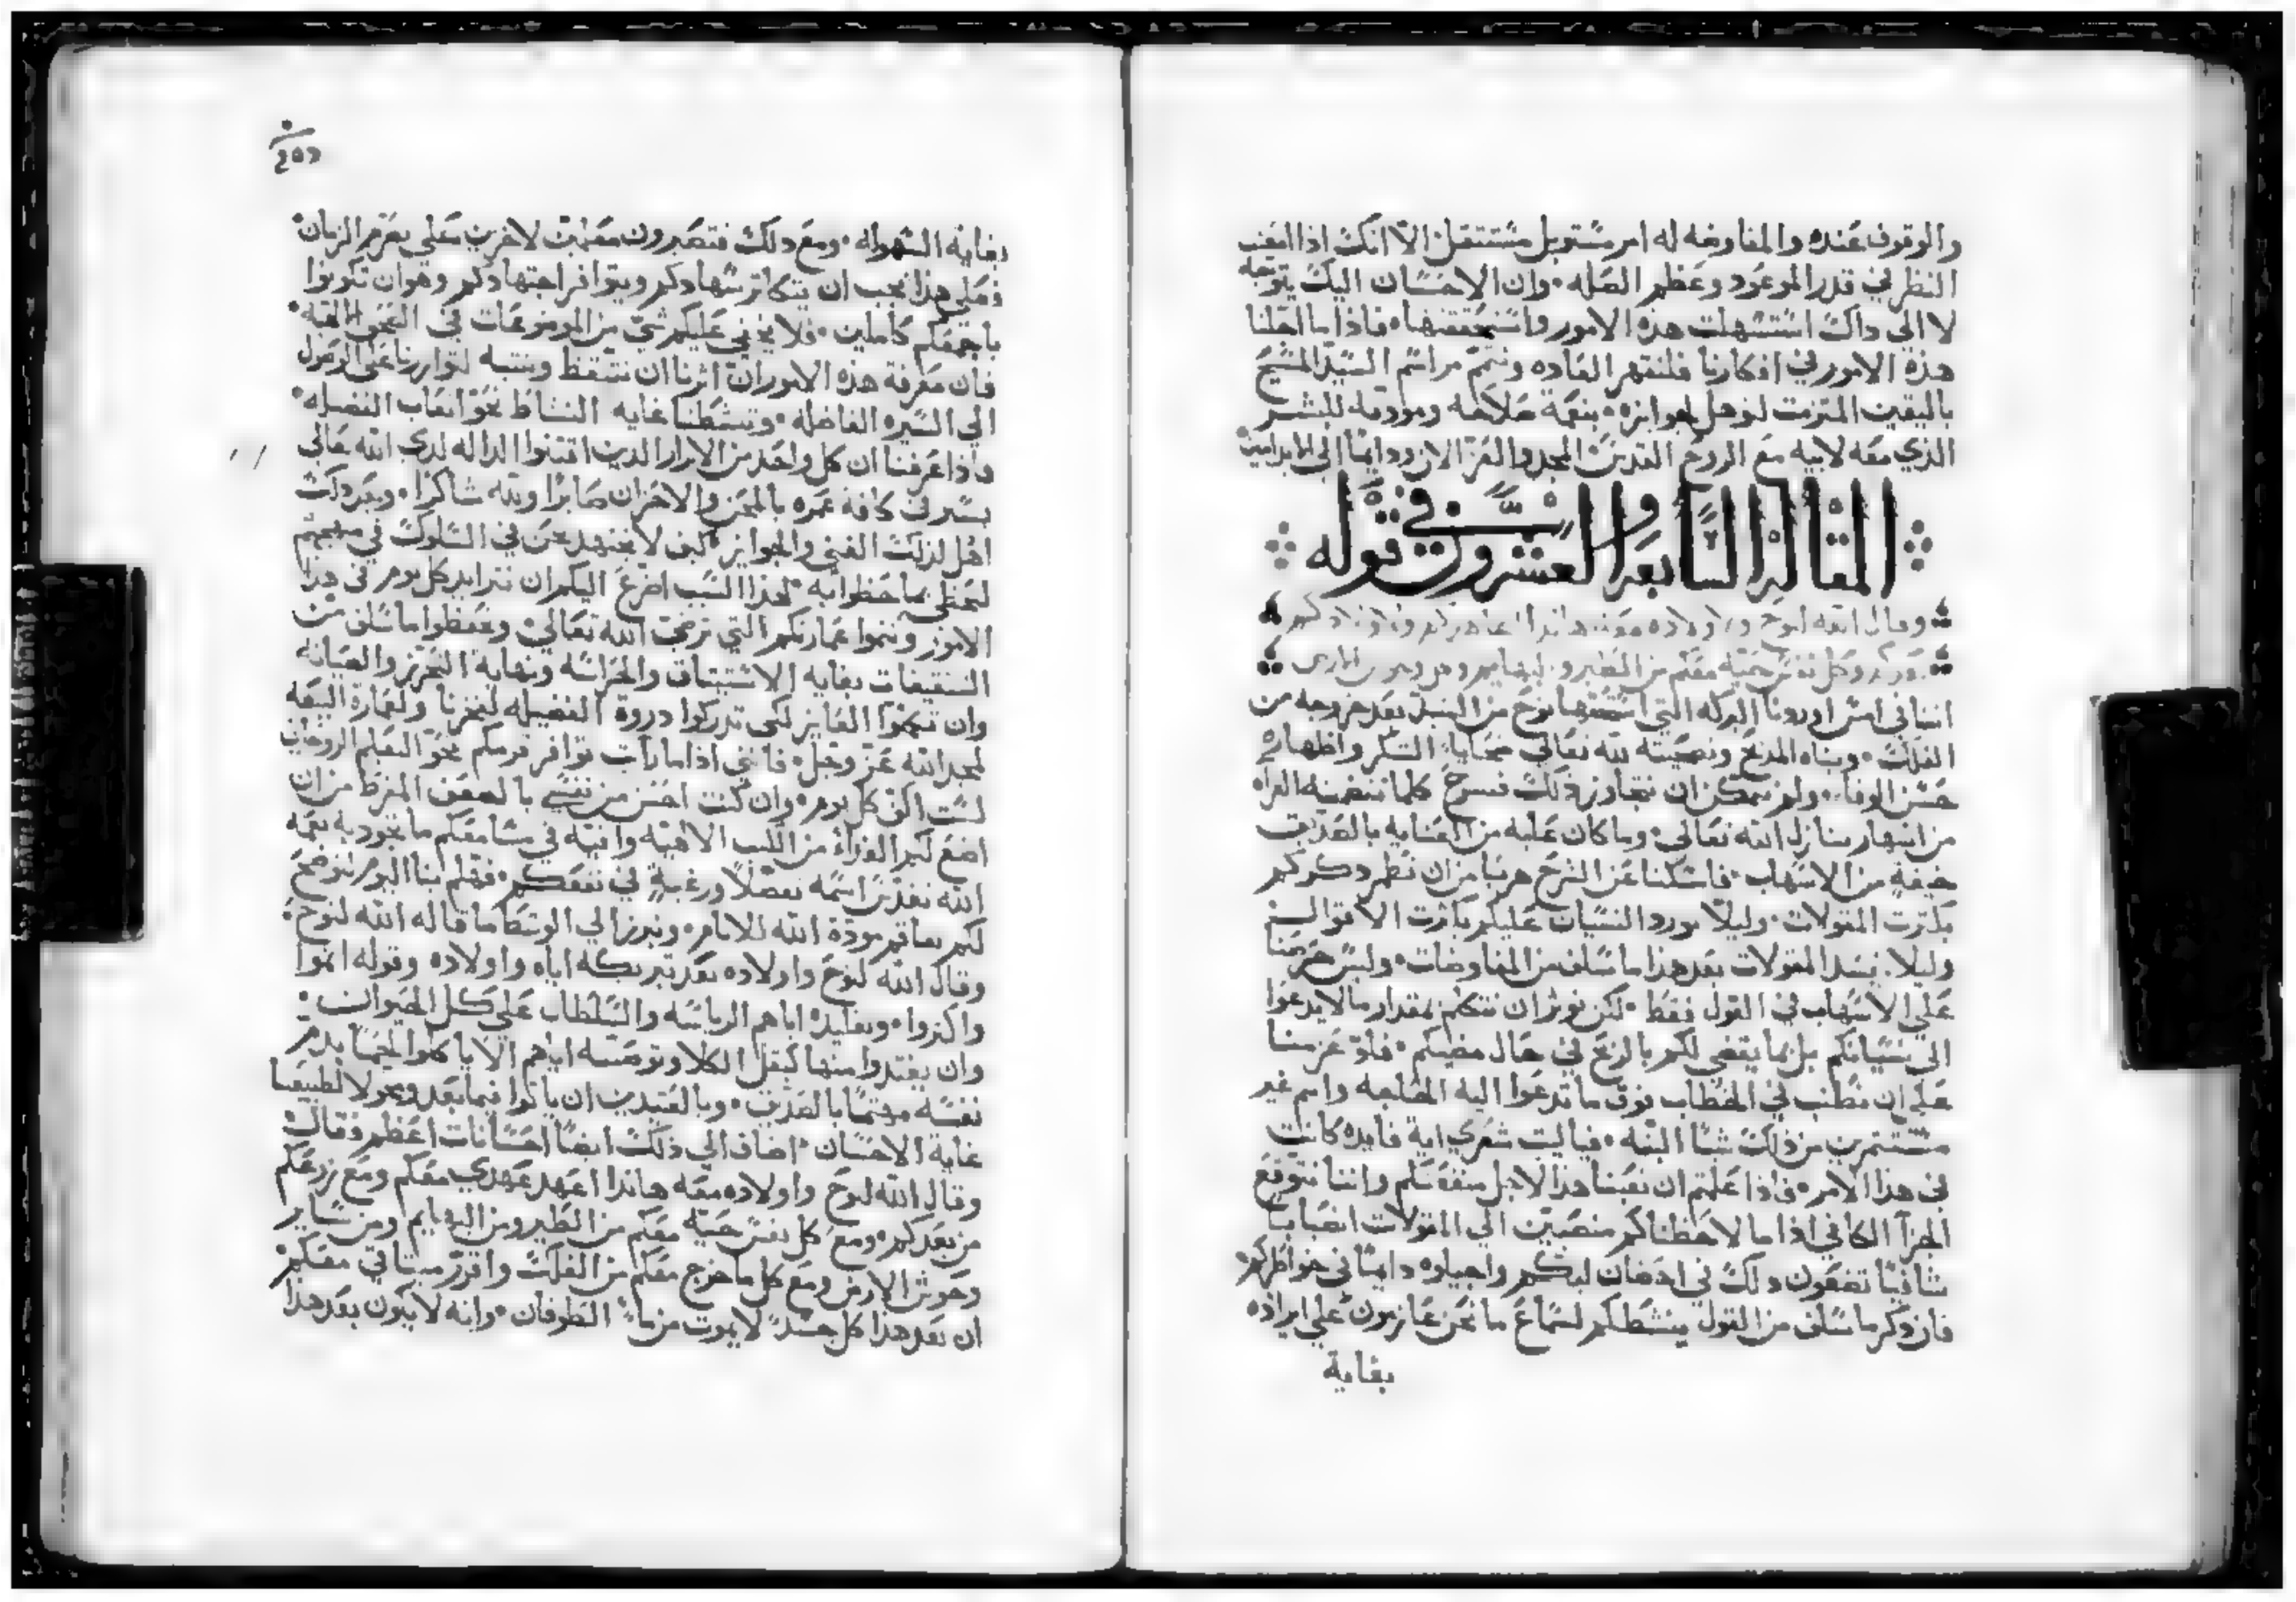 والوقوف عنده والمفاوضه له امر مستوبل مستثقل الا انك اذا امعنت
النظر في قدر الموعود وعظم الصله وان الاحسان اليك يتوجه
لا الي داك استسهلت هذه الامور واستخففتها فاذا ما اجلنا
هذه الامور في افكارنا فلنقهر العاده ونتمم مراسم السيد المسيح
باليقين المتزمت لنوهل لجوايزه بنعمة صلاحه ومودته للبشر
الذي معه لابيه مع الروح القدس المجد والعز الان ودايمًا الي ابد ابدين
المقالة السابعة والعشرون في قوله
وقال الله لنوح و اولاده معه هانذا اعاهدكم و اولادكم
وكل نفس حيه معكم من الطير و البهايم و من وحوش الارض
اننا في امس اوردنا البركه التي استثمرها نوح من السيد بعد خروجه من
الفلك وبناه المذبح وتضحيته لله تعالي ضحايا الشكر واظهاره
حسن الوفاء ولم نتمكن ان نتجاوز ذلك فنسرح كلما تتضمنه القراه
من اشهار تنازل الله تعالي وما كان عليه من العنايه بالصديق
خيفة من الاسهاب فامسكنا عن الشرح هربًا من ان نطمر ذكركم
بكثرت المقولات وليلا نورد النسيان عليكم بكثرت الاقوال
وليلا يفسد المقولات بعد هذا ما سلف من المفاوضات وليس حرصنا
علي الاسهاب في القول فقط لكن نوثر ان نتكلم بمقدار ما لا يدعوا
الي نسيانكم بل بما يقضي لكم بالربح في حال مضيكم فلو عزمنا
علي ان نطنب في الخطاب فوق ما تدعوا اليه المصلحه وانتم غير
مستثمرين من ذلك شيًا البته فياليت شعري اية فايده كانت
في هذا الامر فاذا علمتم ان تعبنا هذا لاجل منفعتكم واننا نتوقع
الجزآ الكافي اذا ما لاحظناكم منصبين الي المقولات انصبابًا
شافيًا تضعون ذلك في احضان لبكم واجيلوه دايمًا في خواطركم
فان ذكر ما سلف من القول ينشطكم لسماع ما نحن عازمون علي ايراده
بغاية
بغاية السهوله ومع ذلك فتصيرون معلمين لاخرين علي ممر الزمان
فعلي هذا يجب ان يتكاثر سهادكم ويتوافر اجتهادكم وهو ان تكونوا
باجمعكم كاملين فلا يخفي عليكم شي من الموضوعات في الصحف الالهيه
فان معرفة هذه الامور ان اثرنا ان نتيقظ وننتبه لتوازرنا علي الوصول
الي السيره الفاضله وتنشطنا غايه النشاط نحو اتعاب الفضيله
واذا عرفنا ان كل واحد من الابرار الدين اقتنوا الداله لدي الله تعالي
بسر في كافة عمره بالمحن والاحزان صابرًا ولله شاكرًا وبعد ذلك
اهل لذلك الغني والجوايز كيف لا نجتهد نحن في السلوك في منهجهم
لنحظي بما حظوا به لهذا السبب اضرع اليكم ان نتزايد كل يوم في هذا
الامور وتنموا عمارتكم التي ترضي الله تعالي وتحفظوا ما سلف من
التثقيفات بغاية الاستيثاق والحراسه ونهاية التحرز والصيانه
وان تتمموا الغايز لكي تدركوا دروة الفضيله لفخرنا ولعمارة البيعه
لمجد الله عز وجل فانني اذا ما رايت توافر قرمكم نحو التعلم الروحاني
لست اكف كل يوم وان كنت احس من نفسي بالضعف المفرط من ان
اضع لكم القرآة من الكتب الالاهيه وافيه في مسامعكم ما تجود به نعمه
الله تقدس اسمه تفضلًا ورغبةٍ في نفعكم فهلم بنا اليوم نوضح
لكم تفاقم مودة الله للانام ونبرز الي الوسط ما قاله الله لنوح
وقال الله لنوح واولاده بعد تبريكه اياه واولاده وقوله انموا
واكثروا وتقليده اياهم الرياسه والسلطان علي كل الحيوان
وان يغتدوا منها كبقل الكلا وتوصيته اياهم الا ياكلوا لحمًا بدم
نفسه مهتمًا بالصديق وبالعتيدين ان ياتوا فيما بعد ومخولا لطبيعتنا
غاية الاحسان اضاف الي ذلك ايضًا احسانات اعظم فقال
وقال الله لنوح واولاده معه هانذا اعهد عهدي معكم ومع زرعكم
من بعدكم ومع كل نفس حيه معكم من الطير ومن البهايم ومن ساير
وحوش الارض ومع كل ما خرج معكم من الفلك واقرر ميثاقي معكم
ان بعد هذا كل جسد لا يموت من ماء الطوفان وانه لا يكون بعد هذا